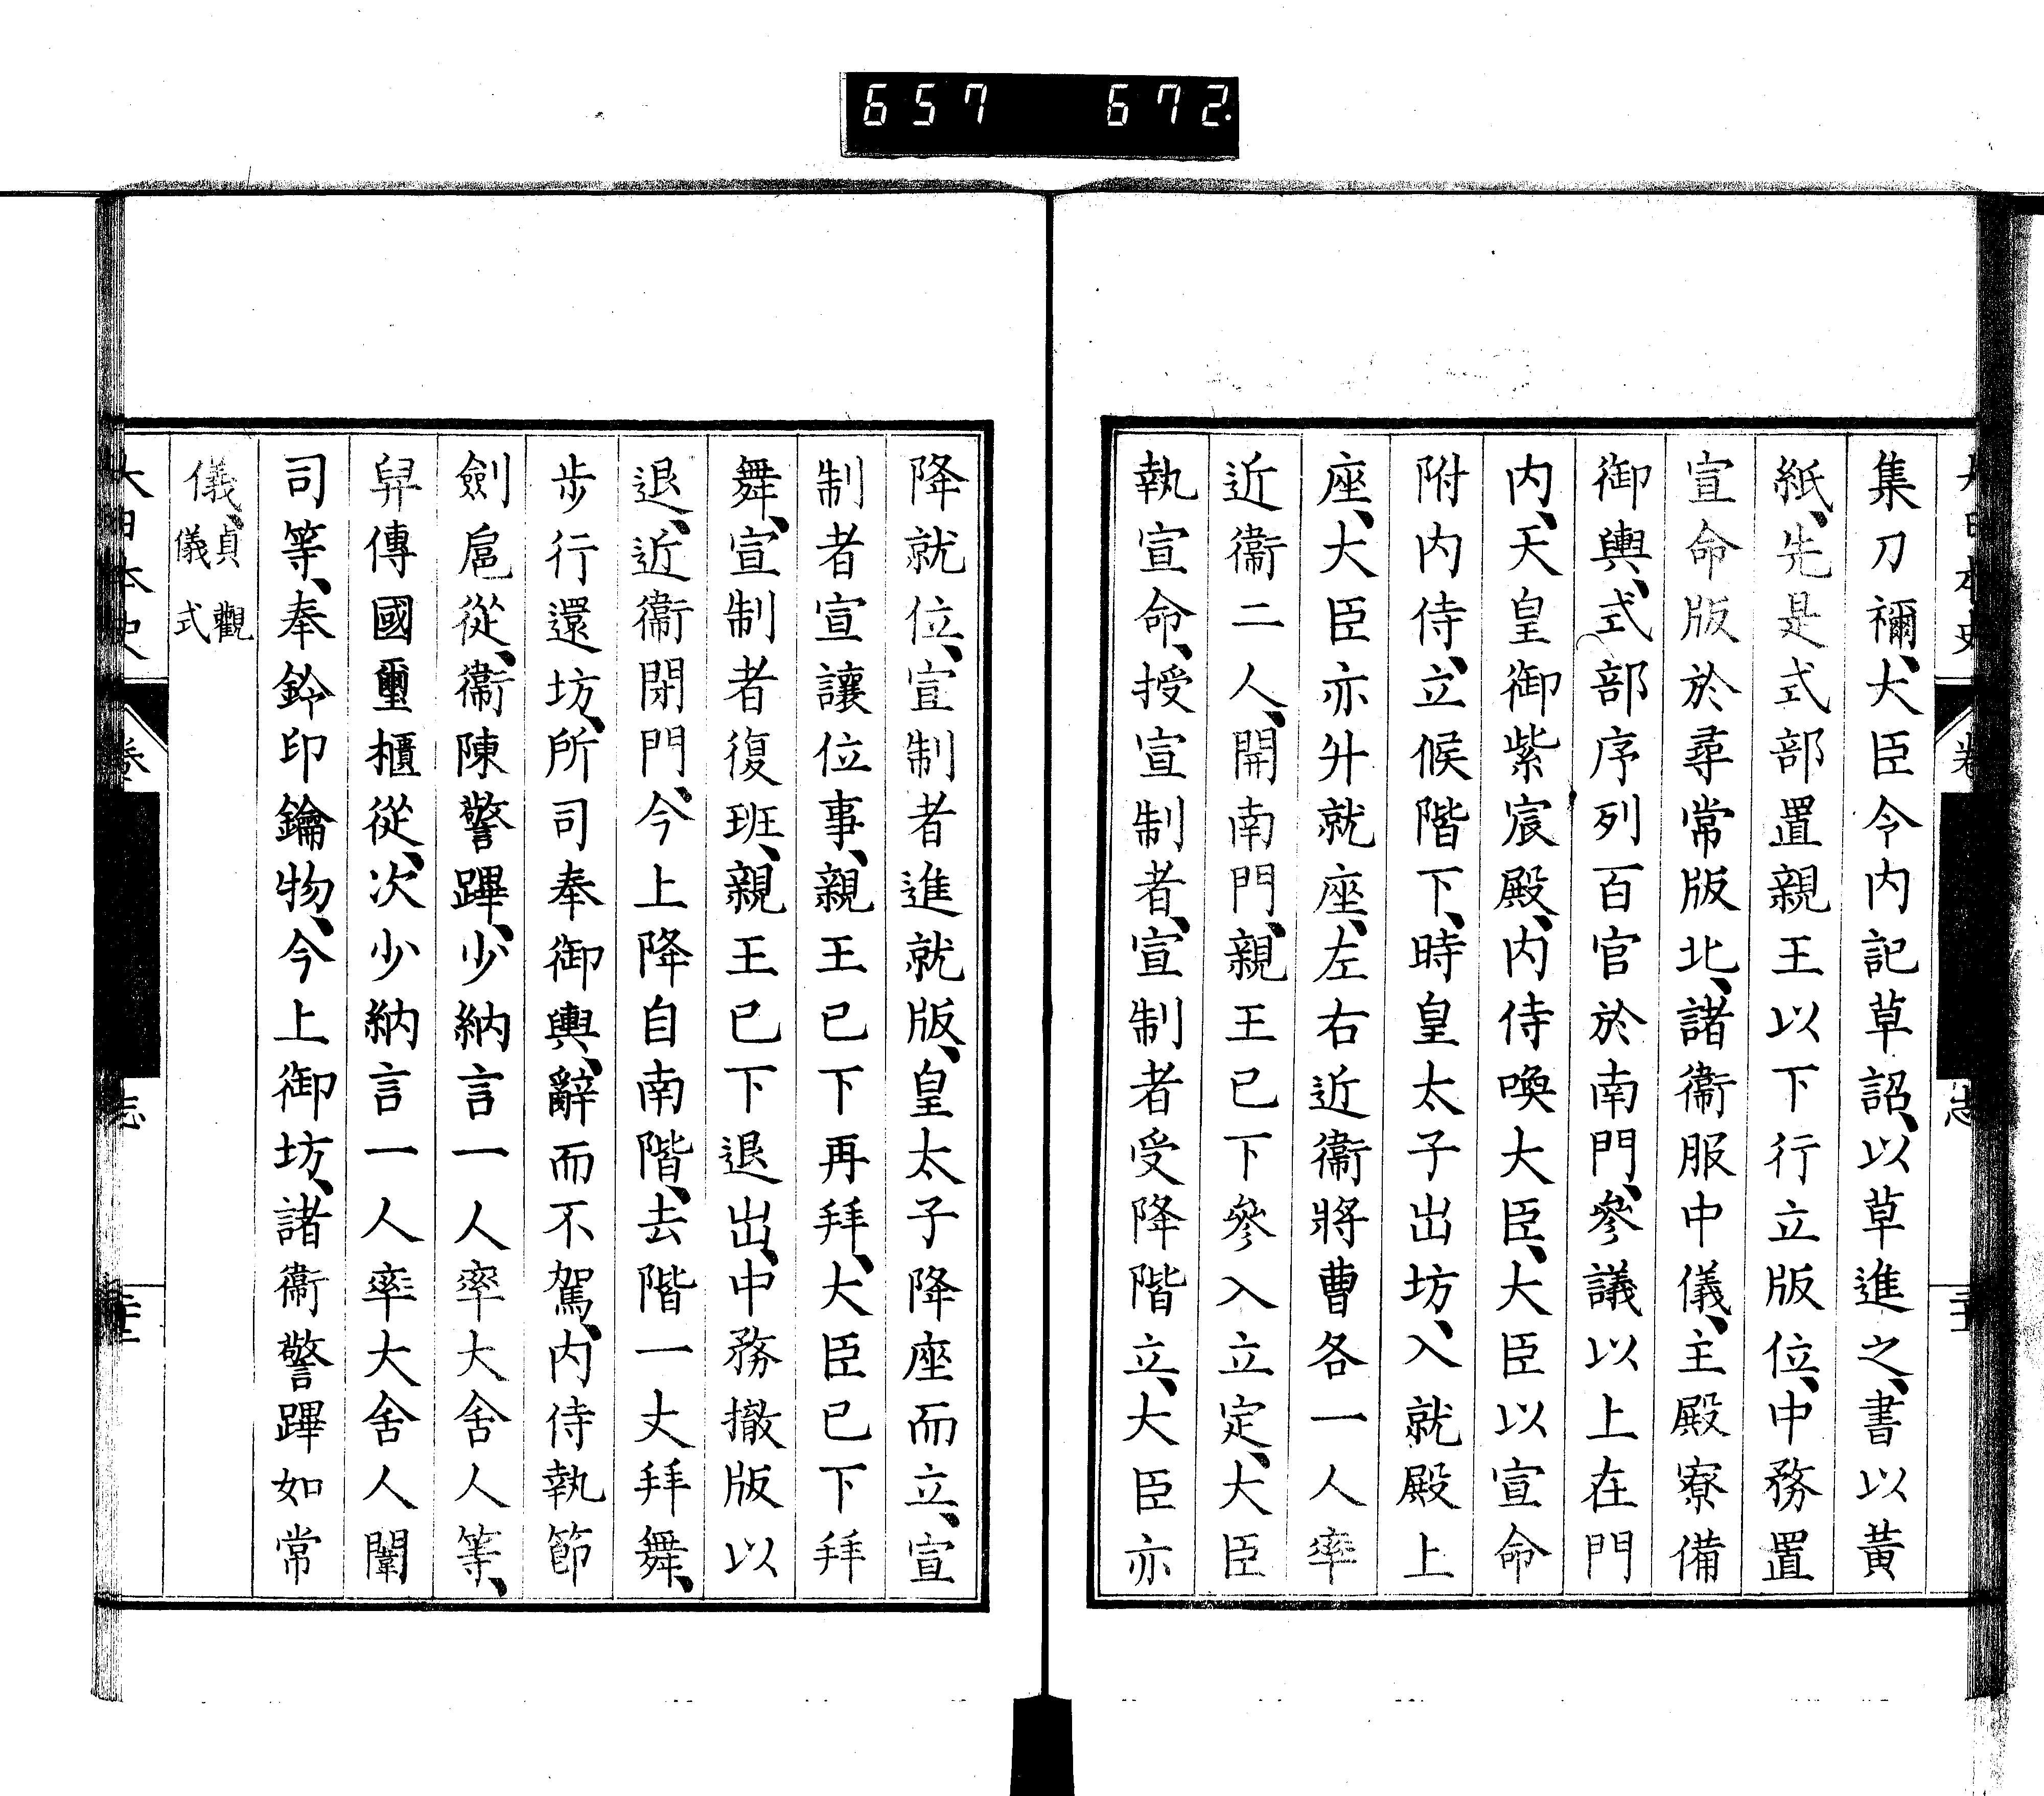 657 672
集刀禰、大臣令内記草詔、以草進之、書以黃
紙、先是式部置親王以下行立版位、中務置
宣命版於尋常版北、諸衞服中儀、主殿寮備
御輿、式部序列百官於南門、參議以上在門
内、天皇御紫宸殿、内侍喚大臣、大臣以宣命
附内侍、立候階下、時皇太子出坊、入就殿上
座、大臣亦升就座、左右近衞將曹各一人率
近衞二人、開南門、親王已下參入立定、大臣
執宣命、授宣制者、宣制者受降階立、大臣亦
降就位、宣制者進就版、皇太子降座而立、宣
制者宣讓位事、親王已下再拜、大臣已下拜
舞、宣制者復班、親王已下退出、中務撤版以
退、近衞閉門、今上降自南階、去階一丈拜舞、
步行還坊、所司奉御輿、辭而不駕、内侍執節
劍扈從、衞陳警蹕、少納言一人率大舍人等、
舁傳國璽櫃從、次少納言一人率大舍人闈
司等、奉鈴印鑰物、今上御坊、諸衞警蹕如常
儀、貞觀
儀式
大日本史 卷 志